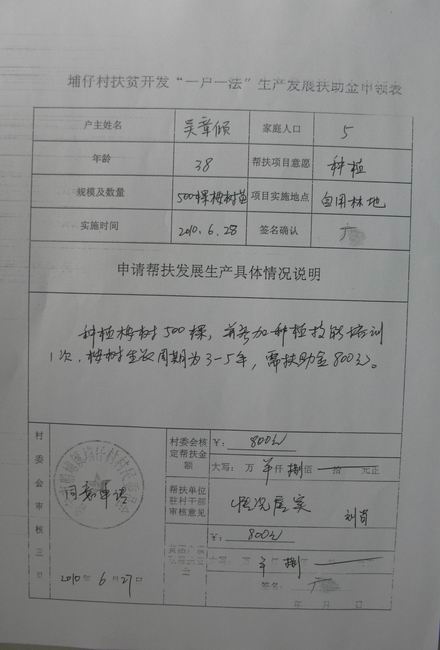 埔仔村扶贫开发“一户一法”生产发展扶助金申领表
户主姓名 吴章倾 家庭人口 5
年龄 38 帮扶项目意愿 种植
规模及数量 500棵梅树苗 项目实施地点 自用林地
实施时间 2010.6.28 签名确认
申请帮扶发展生产具体情况说明
种植梅树500棵，并参加种植技能培训
1次，梅树生长周期为3-5年，需扶助金800元。
村委会审核
同意申请
2010年6月27日
村委会核定帮扶金额 ￥：800元
大写：万 仟 捌佰 拾 元正
帮扶单位驻村干部审核意见 情况属实
￥：800元
捌
签名：
年 月 日